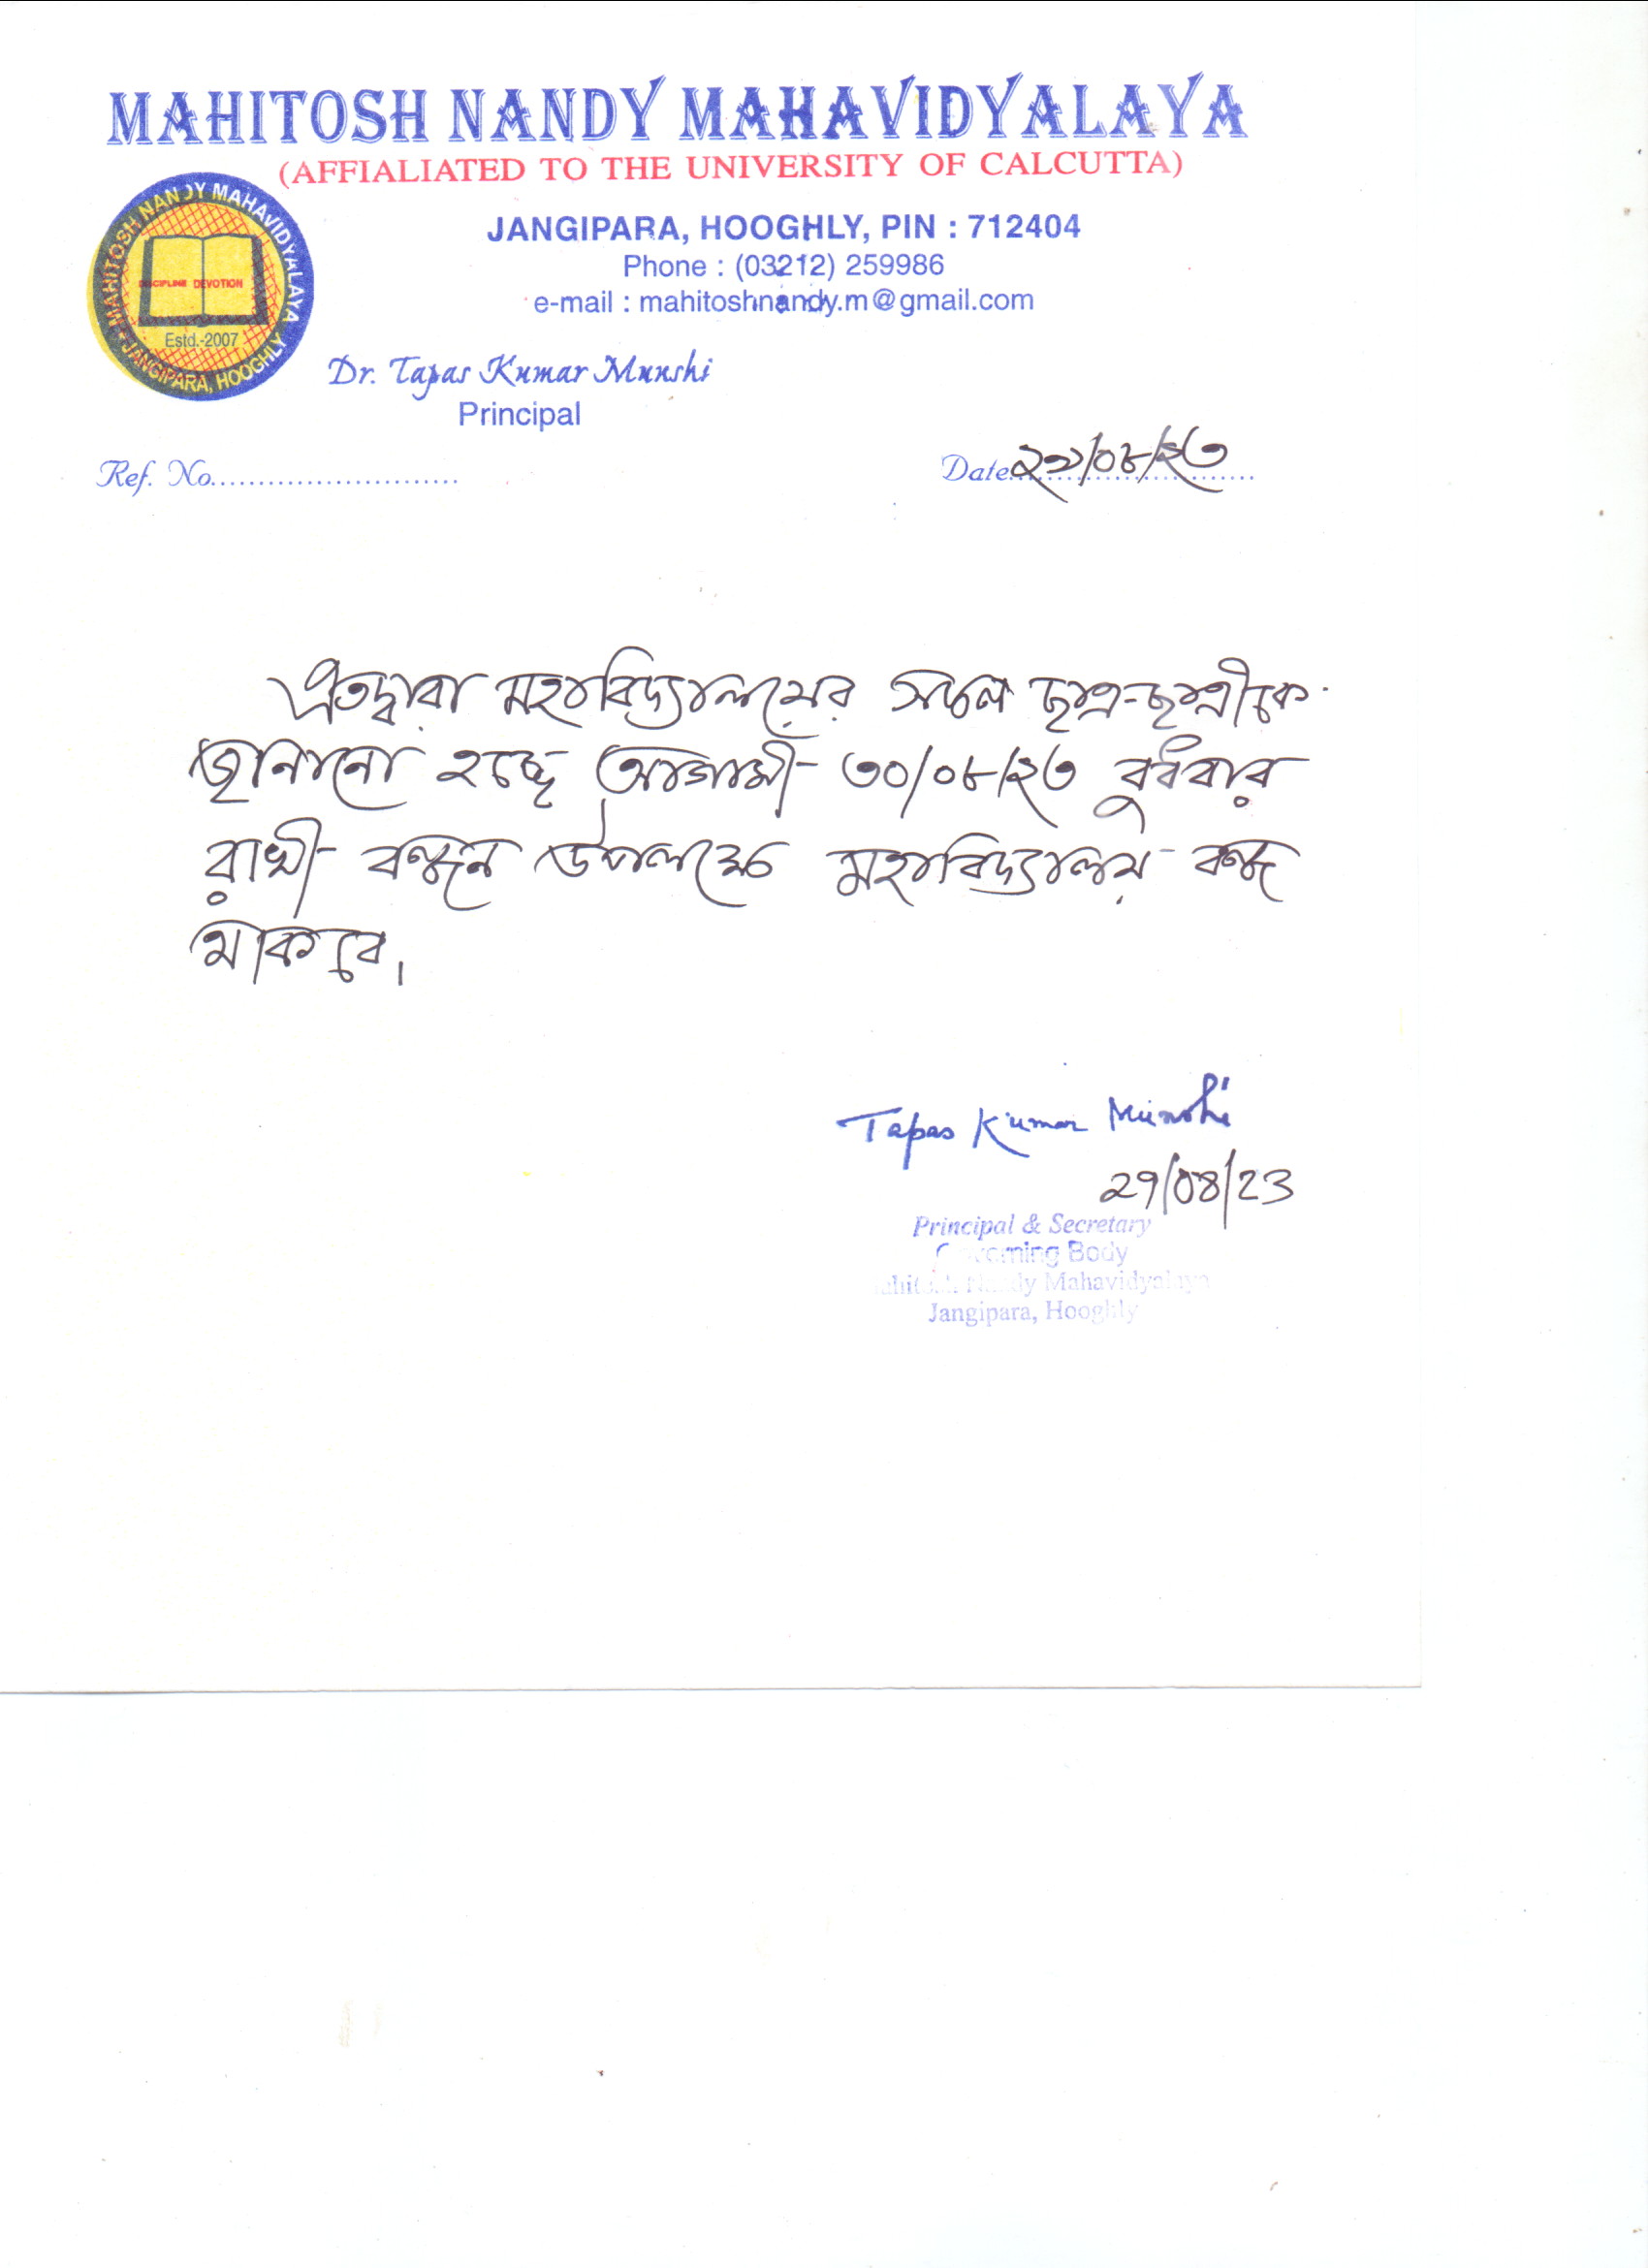 MAHITOSH NANDY MAHAVIDYALAYA
(AFFIALIATED TO THE UNIVERSITY OF CALCUTTA)
JANGIPARA, HOOGHLY, PIN : 712404
Phone : (03212) 259986
e-mail : mahitoshnandy.m@gmail.com
MAHITOSH NANDY MAHAVIDYALAYA
DISCIPLINE DEVOTION
Estd.-2007
JANGIPARA, HOOGHLY
Dr. Tapas Kumar Munshi
Principal
Ref. No.......................... Date ২৯/০৮/২৩
এতদ্বারা মহাবিদ্যালয়ের সকল ছাত্র-ছাত্রীকে
জানানো হচ্ছে আগামী ৩০/০৮/২৩ বুধবার
রাখী বন্ধন উপলক্ষে মহাবিদ্যালয় বন্ধ
থাকবে।
Tapas Kumar Munshi
29/08/23
Principal & Secretary
Governing Body
Mahitosh Nandy Mahavidyalaya
Jangipara, Hooghly